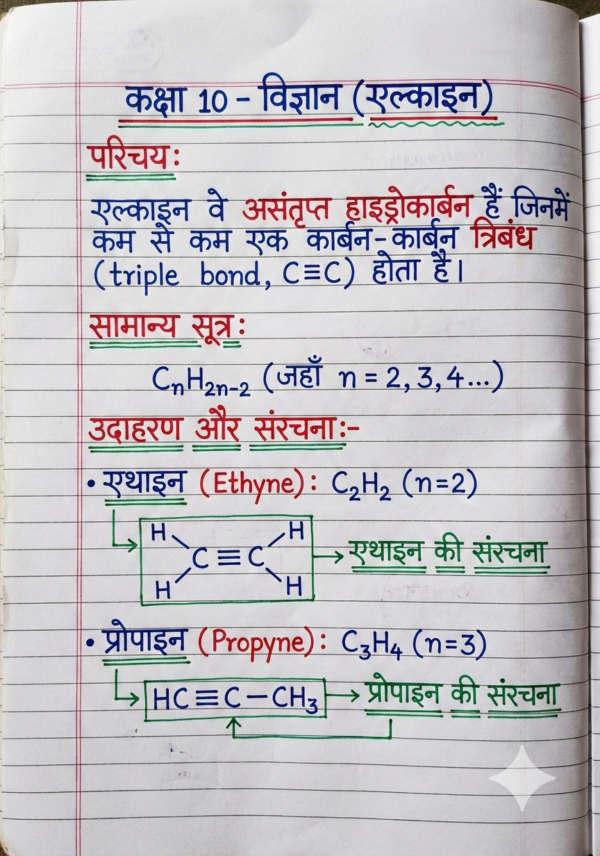 कक्षा 10 - विज्ञान (एल्काइन)
परिचय:
एल्काइन वे असंतृप्त हाइड्रोकार्बन हैं जिनमें
कम से कम एक कार्बन-कार्बन त्रिबंध
(triple bond, C≡C) होता है।
सामान्य सूत्र:
CₙH₂ₙ₋₂ (जहाँ n = 2, 3, 4...)
उदाहरण और संरचना:-
• एथाइन (Ethyne): C₂H₂ (n=2)
H H
C ≡ C → एथाइन की संरचना
H H
• प्रोपाइन (Propyne): C₃H₄ (n=3)
HC ≡ C – CH₃ → प्रोपाइन की संरचना